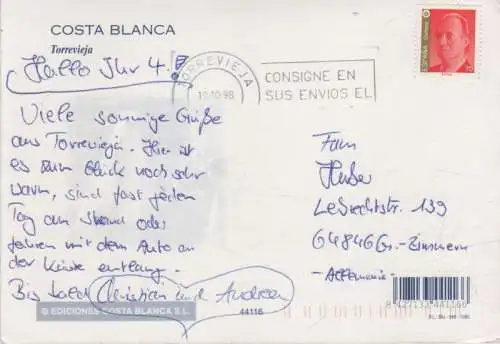 COSTA BLANCA
Torrevieja
Hallo Ihr 4!
Viele sonnige Grüße
aus Torrevieja. Hier ist
es zum Glück noch sehr
warm, sind fast jeden
Tag am Strand oder
fahren mit dem Auto an
der Küste entlang.
Bis bald Christian und Andrea
© EDICIONES COSTA BLANCA S.L.
44116
TORREVIEJA
19-10-98
CONSIGNE EN
SUS ENVIOS EL
ESPAÑA
Correos
Fam
Huber
Lebrechtstr. 139
64846 Gr.-Zimmern
-Allemania-